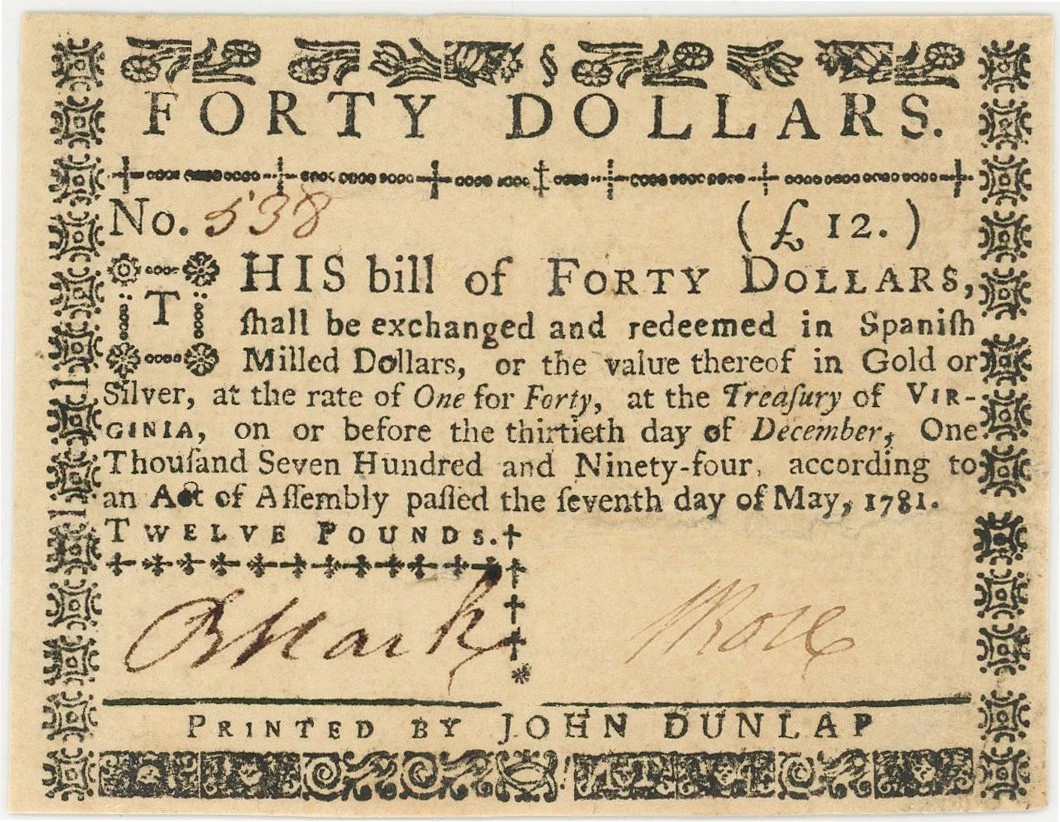 FORTY DOLLARS.
No. 538 (£ 12.)
THIS bill of FORTY DOLLARS,
ſhall be exchanged and redeemed in Spaniſh
Milled Dollars, or the value thereof in Gold or
Silver, at the rate of One for Forty, at the Treaſury of VIR-
GINIA, on or before the thirtieth day of December, One
Thouſand Seven Hundred and Ninety-four, according to
an Act of Aſſembly paſſed the ſeventh day of May, 1781.
TWELVE POUNDS.
PRINTED BY JOHN DUNLAP